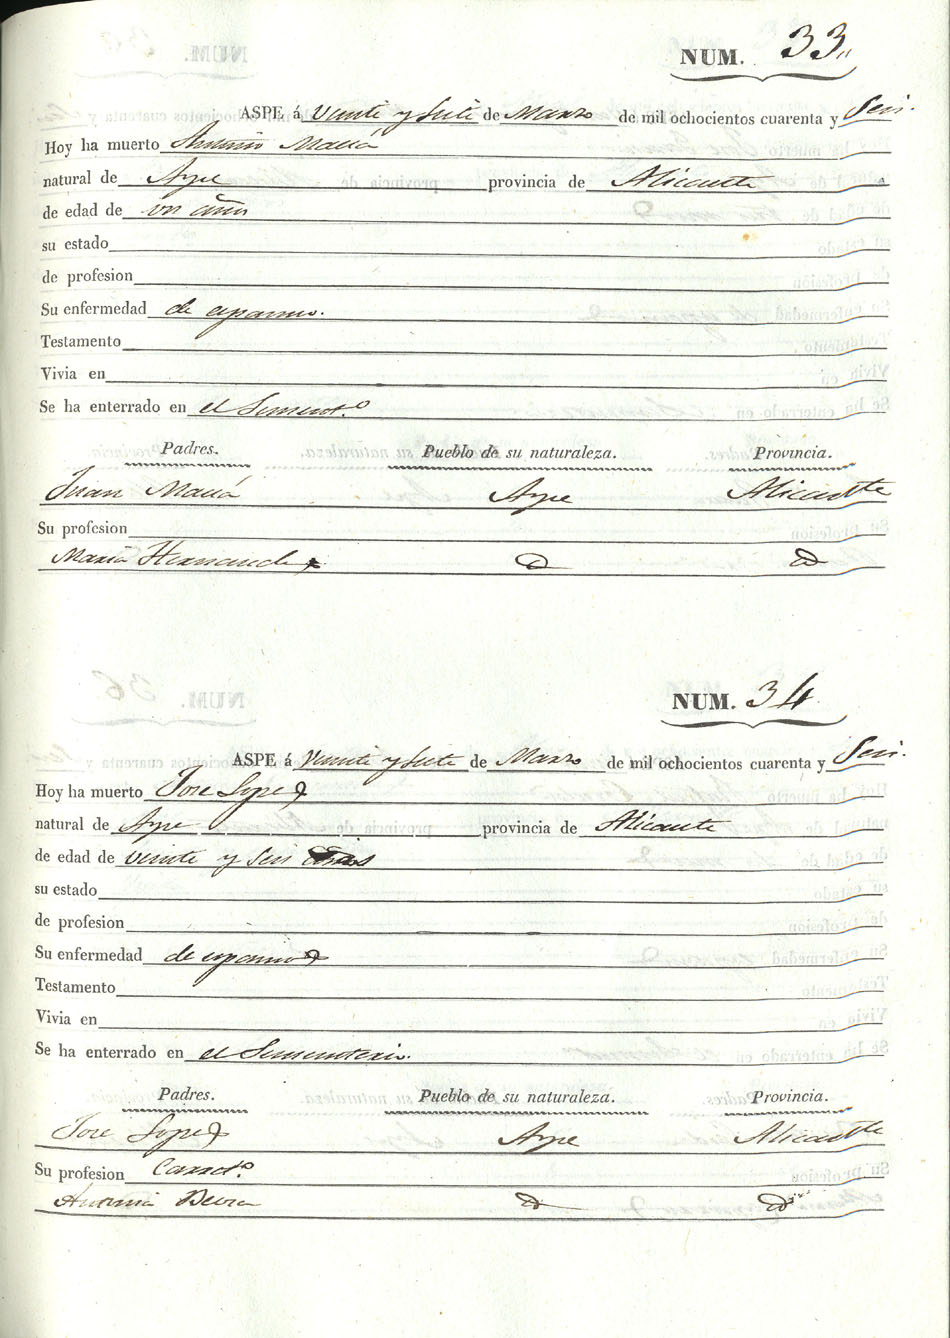 NUM. 33
ASPE á Veinte y siete de Marzo de mil ochocientos cuarenta y Seis.
Hoy ha muerto Antonio Maciá
natural de Aspe provincia de Alicante
de edad de un año
su estado
de profesion
Su enfermedad de espasmo.
Testamento
Vivia en
Se ha enterrado en el Sement.o
Padres. Pueblo de su naturaleza. Provincia.
Juan Maciá Aspe Alicante
Su profesion
Maria Hernandez D D
NUM. 34
ASPE á Veinte y Siete de Marzo de mil ochocientos cuarenta y Seis.
Hoy ha muerto Jose Lopez
natural de Aspe provincia de Alicante
de edad de veinte y seis años
su estado
de profesion
Su enfermedad de espasmo
Testamento
Vivia en
Se ha enterrado en el Sementerio.
Padres. Pueblo de su naturaleza. Provincia.
Jose Lopez Aspe Alicante
Su profesion
Antonia D D